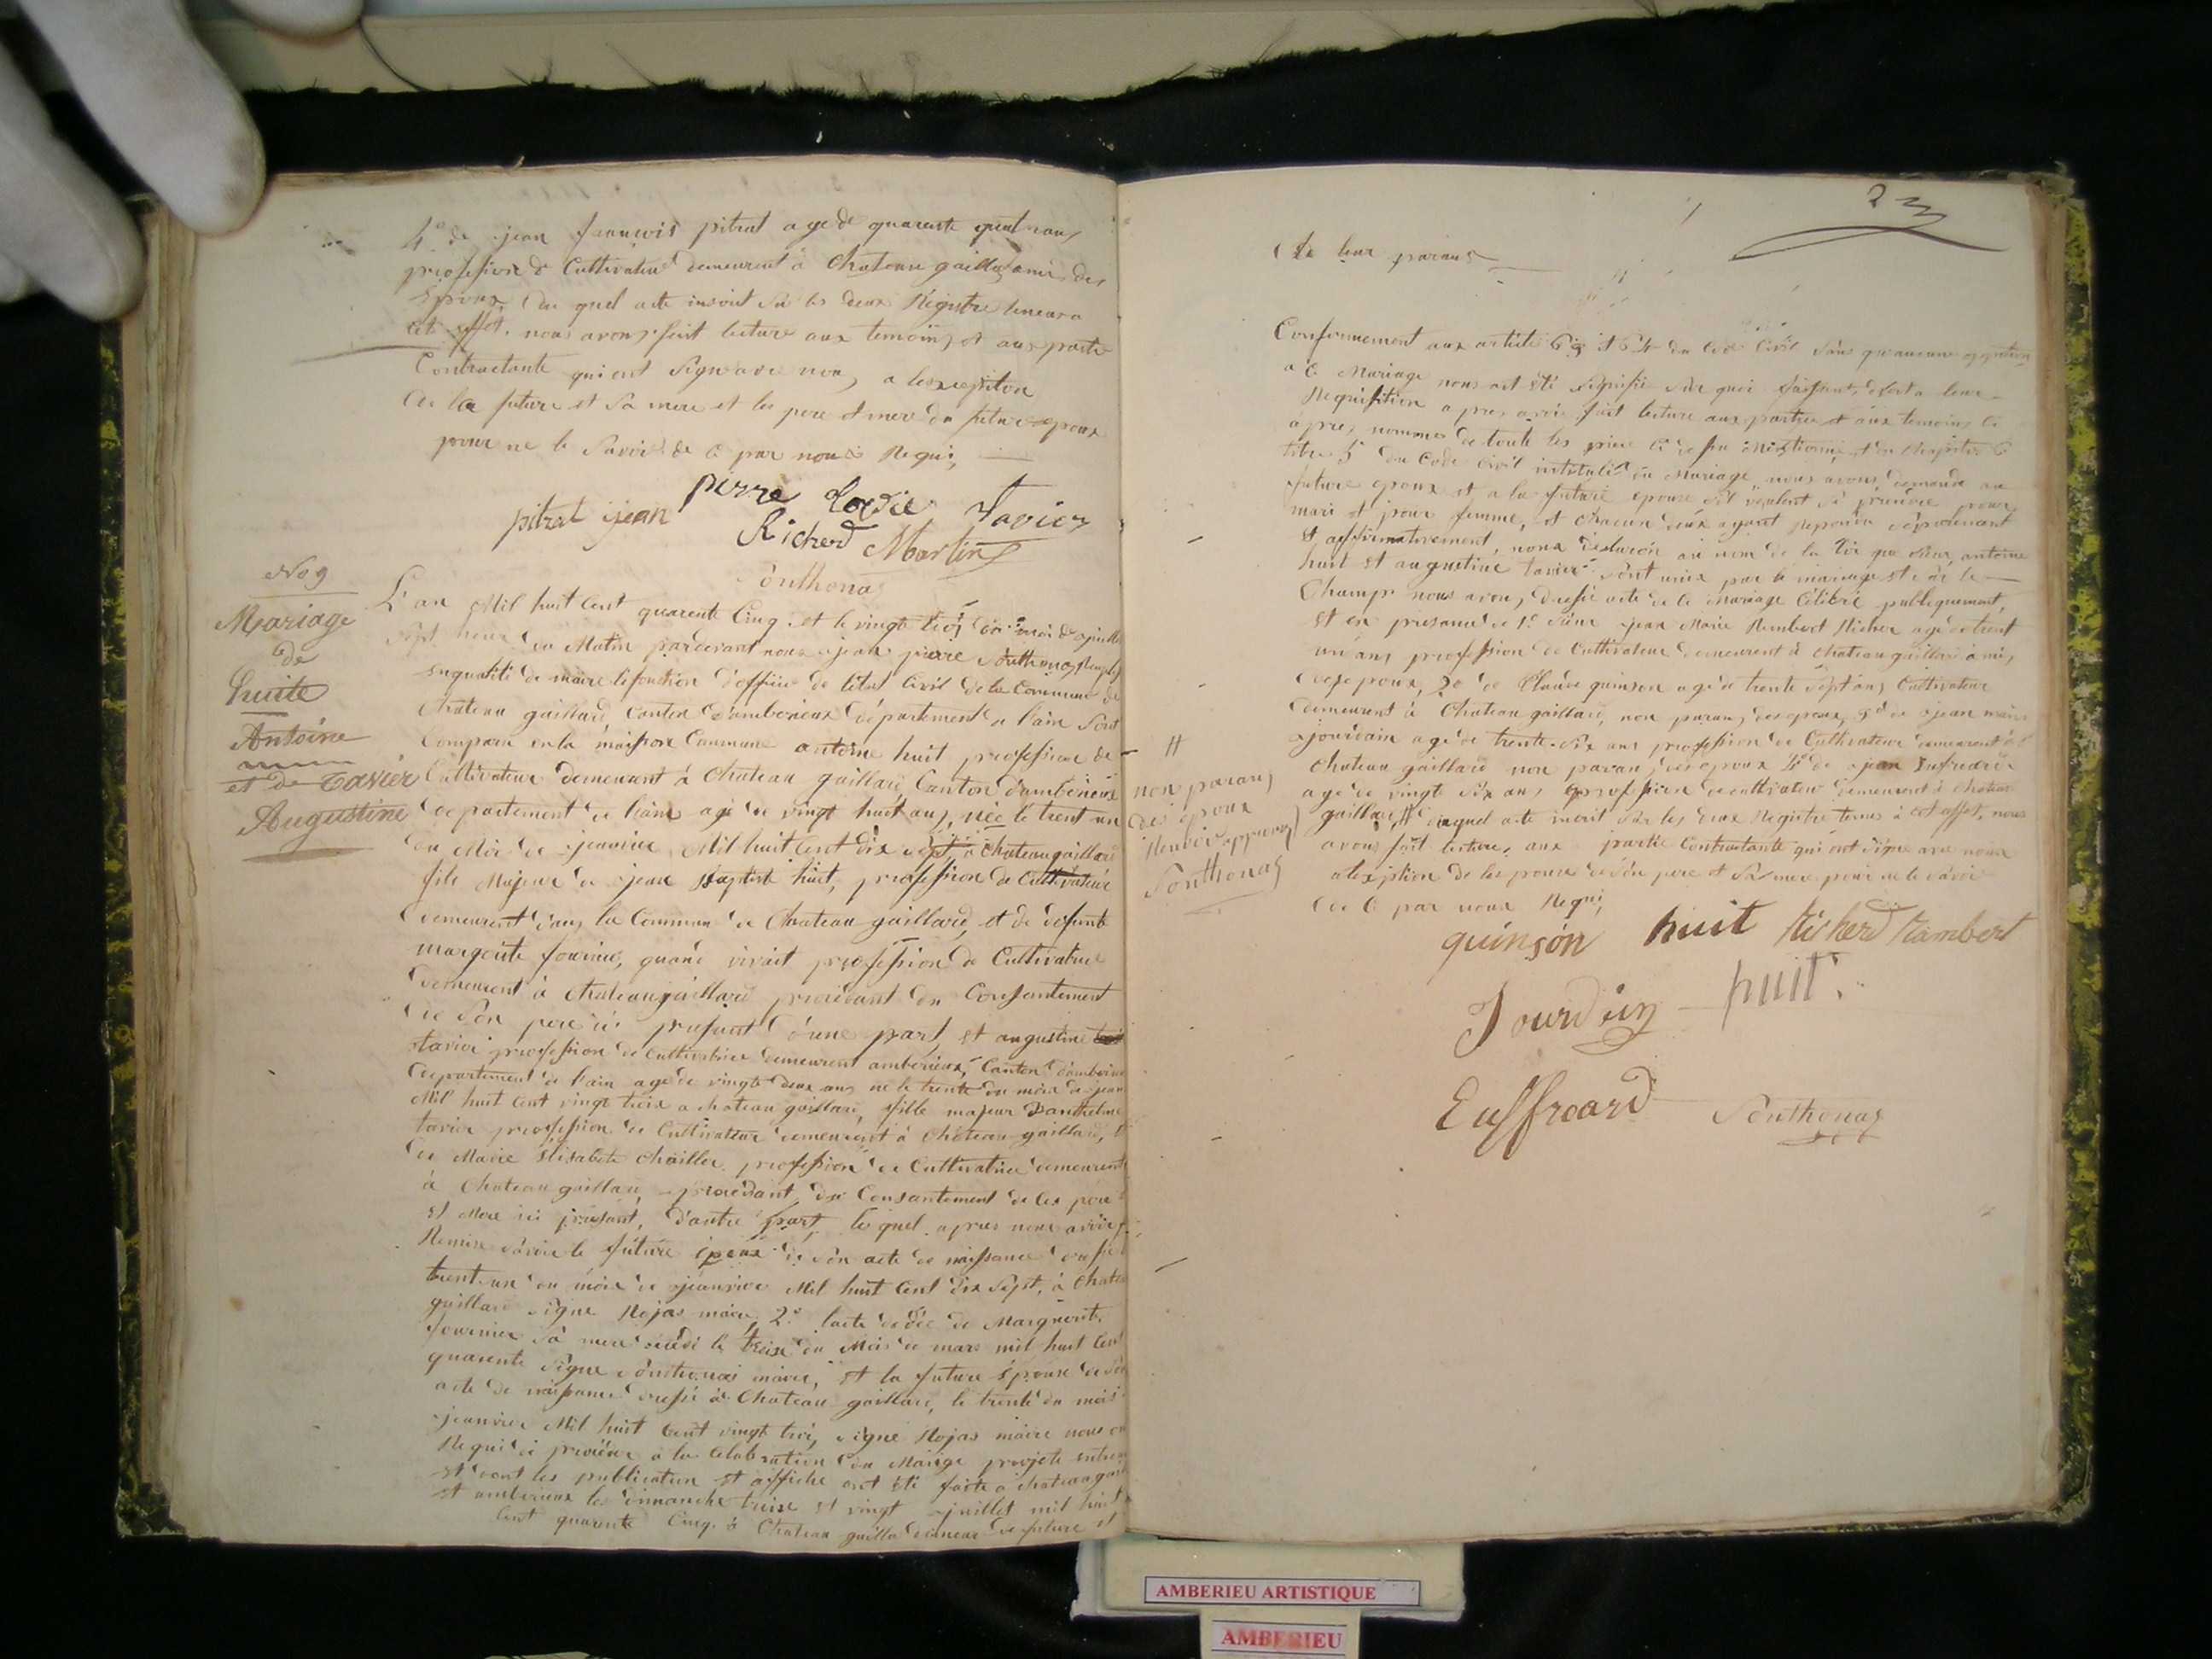 4° de jean francois pitrat age de quarente quatreans
profession de Cultivateur demeurent à Chateau gaillard amis des
Epoux, du quel acte inscrit sur les deux Régistre tenus a
cet effet. nous avons fait lecture aux temoins et aux partie
Contractante qui ont Signe avec nous, a lexception
de la future et Sa mere et les pere et mere du future epoux
pour ne le Savoir de ce par nous Requi,
pitrat jean pierre Tavier
Richerd Martin
Sonthonas
No 9
Mariage
de
huite
Antoine
et de Tavier
Augustine
L'an Mil huit Cent quarente Cinq et le vingt trois du mois de juillet
Sept heure du Matin pardevant nous jean pierre Sonthonas
enqualité de maire fonction d'officier de letat Civil de la Commune de
Chateau gaillard Canton d'amberieux département de l'ain Sont
Comparu en la maison Commune antoine huit profession de
Cultivateur demeurent à Chateau gaillard, Canton d'amberieux
departement de l'ain agé de vingt huit ans, née le trent un
du Mois de jeanvier Mil huit Cent dix sept, à Chateaugaillard
fils Majeur de jean Baptiste huit, profession de Cultivateur
demeurent dans la Commune de Chateau gaillard, et de defunte
margerite fournier, quand vivait profession de Cultivatrice
demeurent à Chateaugaillard procédant du Consantement
de Son pere ici présent d'une part, et augustine
tavier profession de Cultivatrice demeurent amberieux, Canton d'amberieux
departement de l'ain age de vingt deux ans né le trente du mois de jean
Mil huit Cent vingt trois a chateau gaillard, fille majeur Danthelme
tavier profession de Cultivateur demeurent à Château gaillard, et
de Marie Elisabete Chailler profession de Cultivatrice demeurent
à Chateau gaillard, procedant du Consantement de Ces pere
et Mere ici présent, d'autre part, lequel apres nous avoir
Remise Savoir le future époux de Son acte de naissance dressé
trent un du mois de jeanvier Mil huit Cent dix Sept, à Chateau
gaillard Signe Rojas maire, 2° lacte de décé de Marguerite
fournier Sa mere décédé le treize du Mois de mars mil huit Cent
quarente Signe Sonthonas maire, et la future épouse de Son
acte de naissance dressé à Chateau gaillard, le trente du mois
jeanvier Mil huit Cent vingt trois, Signe Rojas maire nous on
Requi de procéder a la Celebration du Mariage projete entre
et dont les publication et affiche ont été faite a chateaugail
et amberieux les dimanche treize et vingt juillet mil huit
Cent quarente Cinq. à Chateau gaillard demeur de future et
23
de leur parans
Conformement aux article 63 et 64 du Code Civil Sans qu'aucune opposition
a ce Mariage nous ait été Signifié Sur quoi faisant droit a leur
Requisition apres avoir fait lecture aux partie et aux temoins ci
apres nommés de toute les piece ci dessu Mentionné, et du Chapitre 6
titre 5 du Code Civil intitulé du Mariage, nous avons demandé au
future epoux et a la future epouse s'il veulent Se prendre pour
mari et pour femme, et chacun deux ayant repondu Séparement
et affirmativement, nous declaron au nom de la loi que Sieur antoine
huit et augustine tavier Sont unis par le mariage et de ce
Champ nous avons dressé acte de ce Mariage Célébré publequement,
et en presance de 1° Sieur jean Marie Rembert Richer agé de trent
un ans profession de Cultivateur demeurent à chateau gaillard ami
des epoux, 2° de Claude quinson agé de trente Sept ans Cultivateur
demeurent à Chateau gaillard, non parans des epoux, 3° de jean marie
jourdain agé de trente-Six ans profession de Cultivateur demeurent à
Chateau gaillard non parans des epoux 4° de jean Eusfreard
age de vingt Six ans profession de cultivateur demeurent à Chateau
gaillard, # duquel acte inscrit Sur les deux Registre tenus à cet effet, nous
avons fait lecture, aux partie Contractante qui ont Signe avec nous
alexeption de les pouse de Son pere et Sa mere pour ne le Savoir
de ce par nous Requi,
#
non parans
des epoux
Renvoi approuvé
Sonthonas
quinson huit Richerd Rambert
Jourdein huit
Eusfreard Sonthonas
AMBERIEU ARTISTIQUE
AMBERIEU